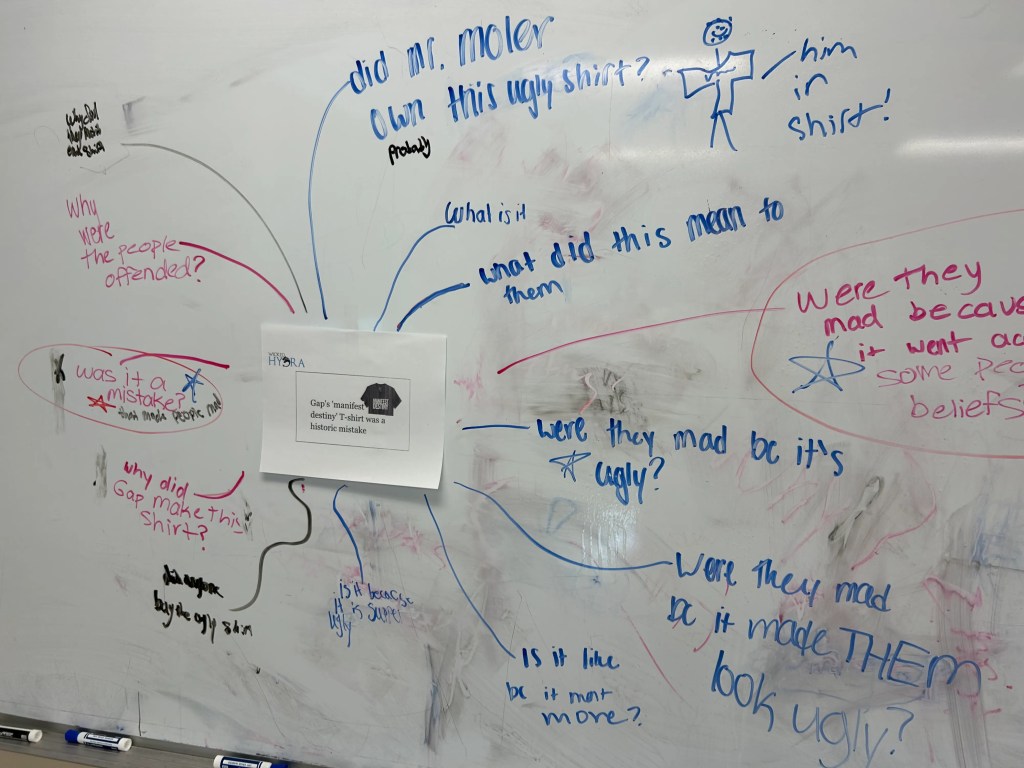 did mr. moler
own this ugly shirt?
probably
him
in
shirt!
why did
they
shirt
Why
were
the people
offended?
What is it
what did this mean to
them
HYDRA
Gap's 'manifest
destiny' T-shirt was a
historic mistake
Were they
mad because
it went
some
beliefs
was it a
mistake?
that made people mad
were they mad bc it's
ugly?
why did
Gap make this
shirt?
did anyone
buy the ugly shirt
is it because
it is super
ugly
Is it like
bc it ment
more?
Were they mad
bc it made THEM
look ugly?